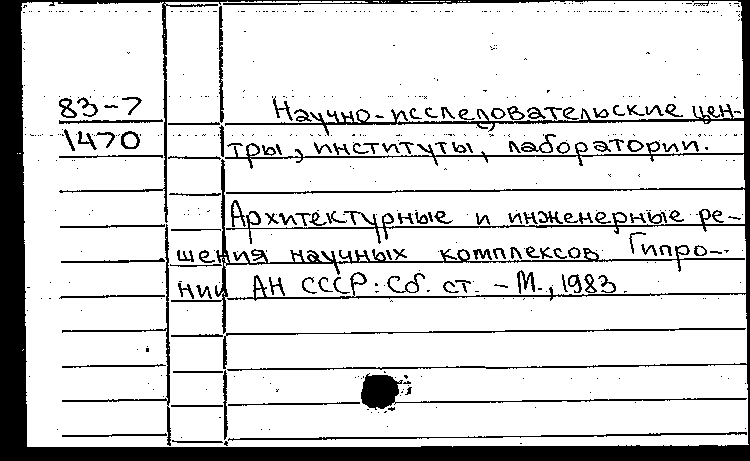 83-7 Научно-исследовательские цен-
1470 тры, институты, лаборатории.
Архитектурные и инженерные ре-
шения научных комплексов Гипро-
нии АН СССР: Сб. ст. - М., 1983.